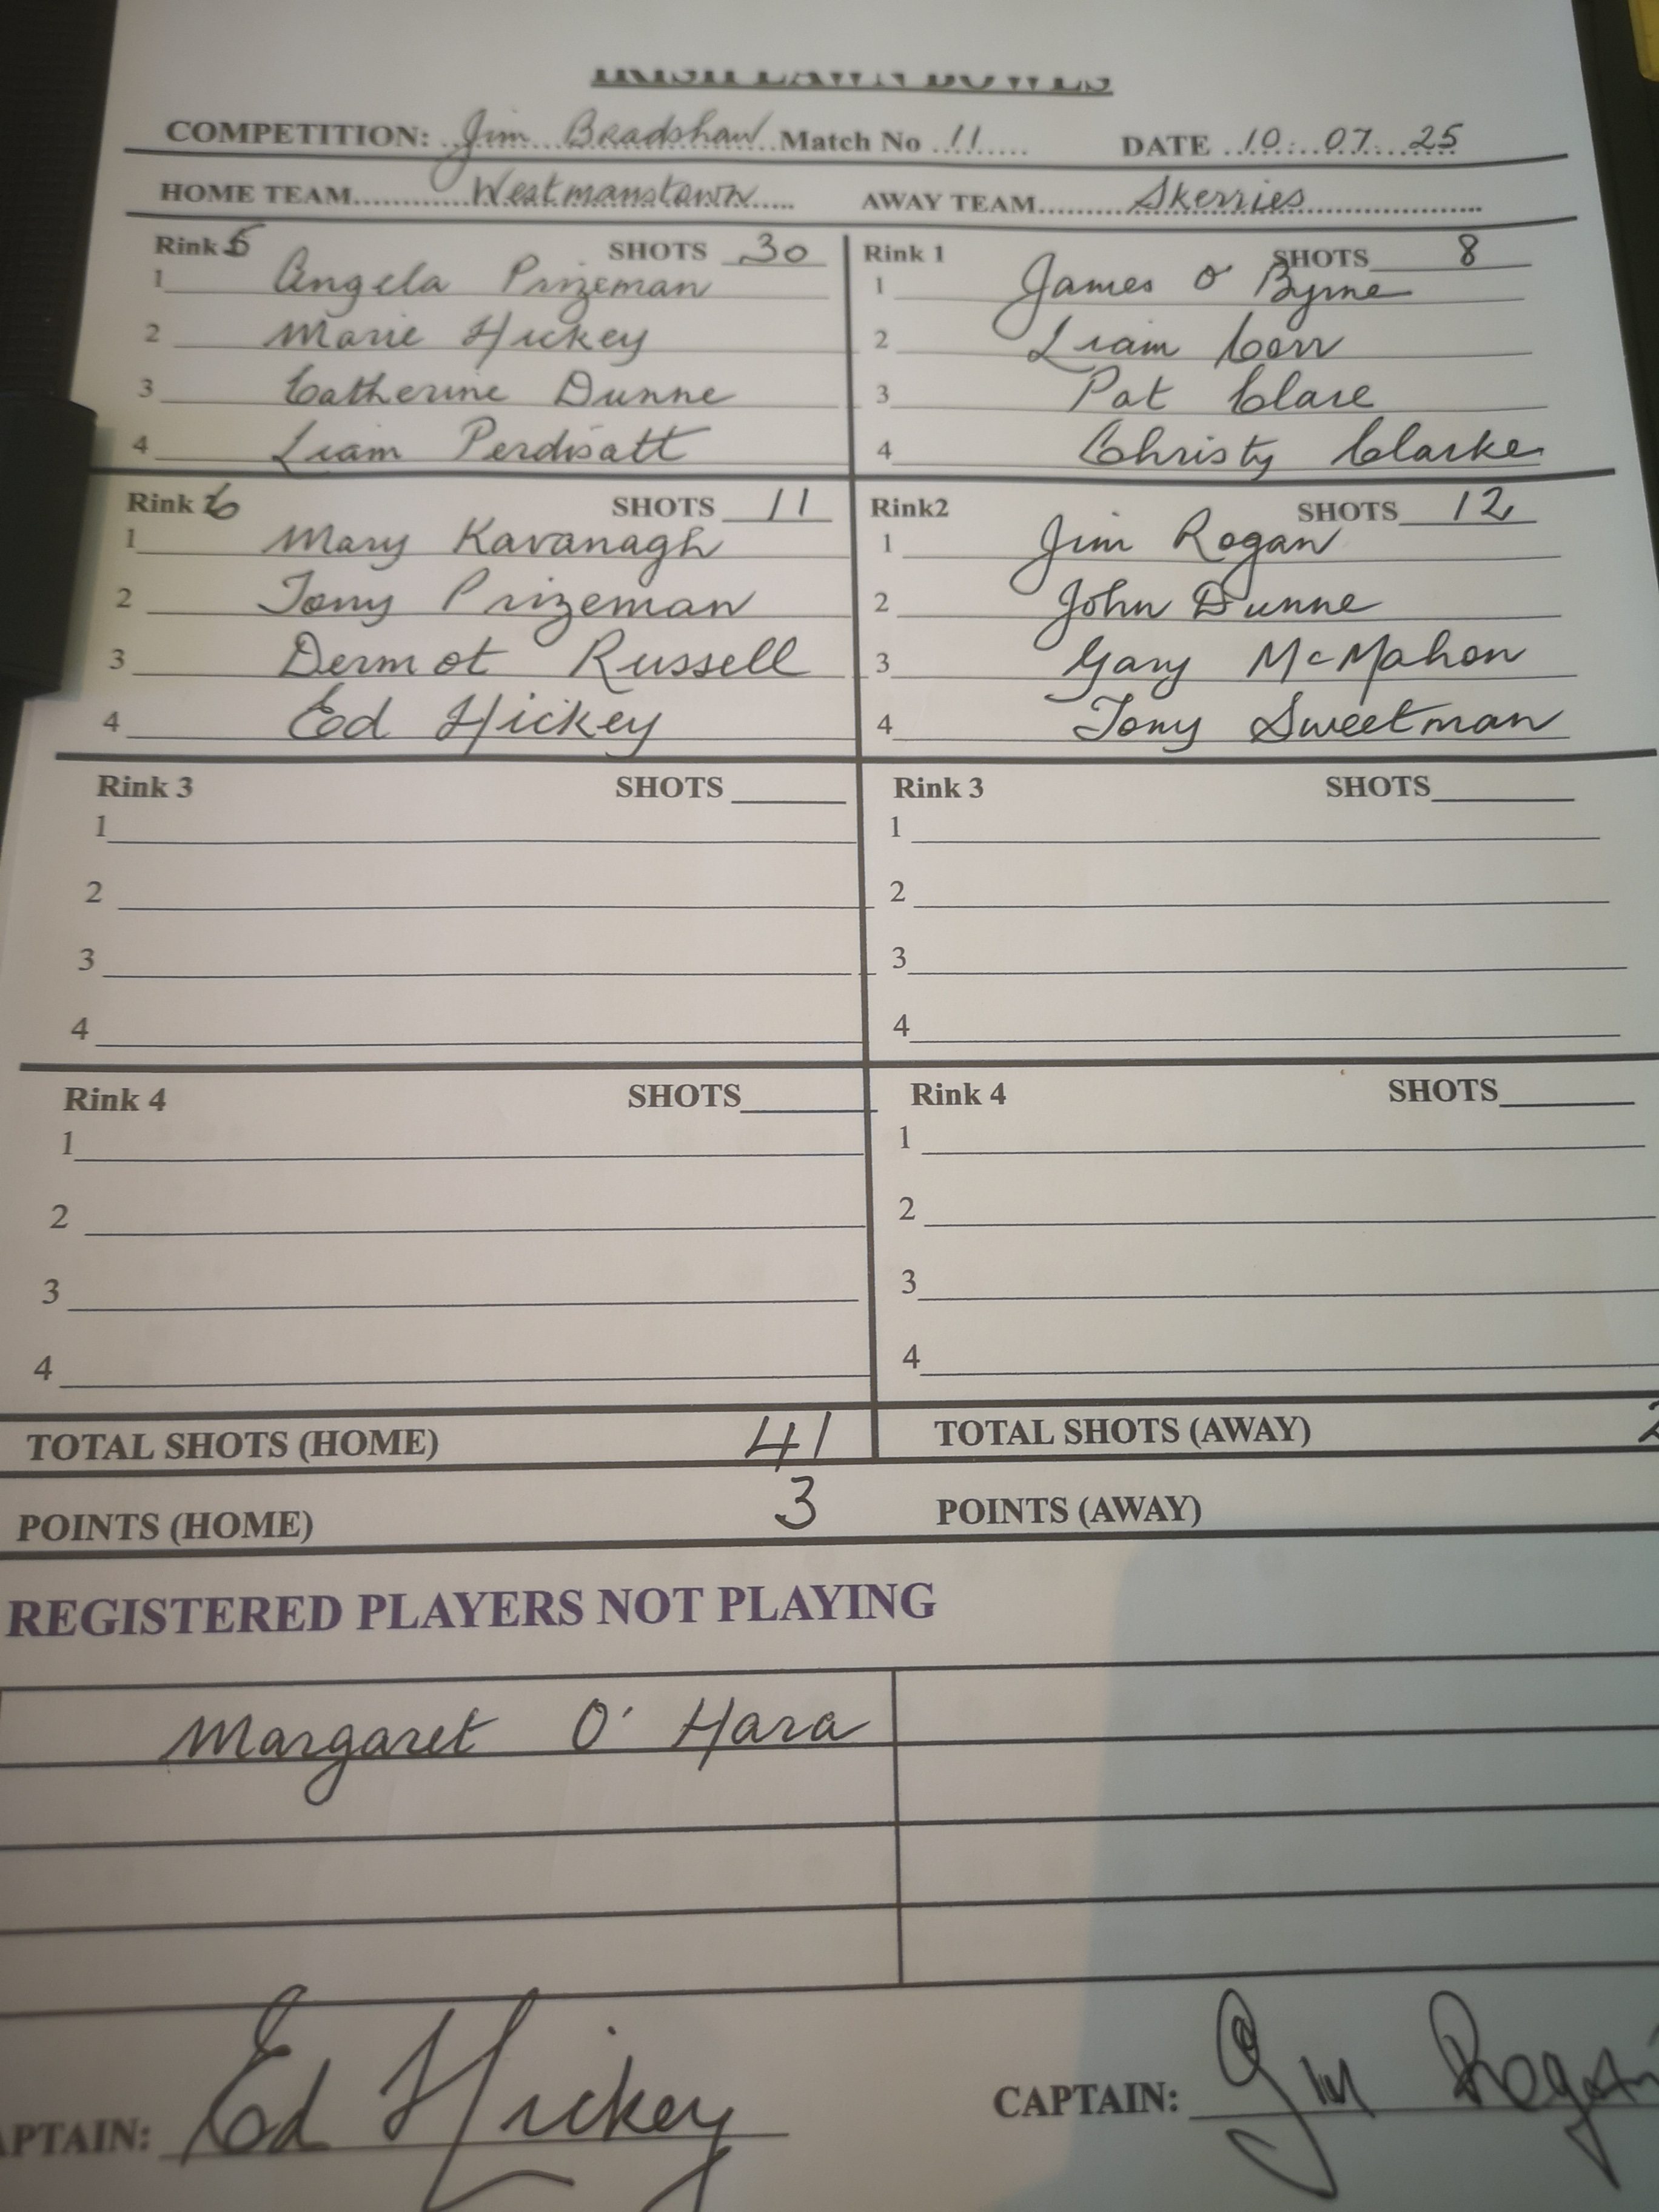 IRISH LAWN BOWLS
COMPETITION: Jim Bradshaw Match No 11 DATE 10.07.25
HOME TEAM Westmanstown AWAY TEAM Skerries
Rink 5 SHOTS 30 Rink 1 SHOTS 8
1 Angela Prizeman 1 James O'Byrne
2 Marie Hickey 2 Liam Corr
3 Catherine Dunne 3 Pat Clare
4 Liam Perdisatt 4 Christy Clarke
Rink 6 SHOTS 11 Rink2 SHOTS 12
1 Mary Kavanagh 1 Jim Rogan
2 Tony Prizeman 2 John Dunne
3 Dermot Russell 3 Gary McMahon
4 Ed Hickey 4 Tony Sweetman
Rink 3 SHOTS Rink 3 SHOTS
1 1
2 2
3 3
4 4
Rink 4 SHOTS Rink 4 SHOTS
1 1
2 2
3 3
4 4
TOTAL SHOTS (HOME) 41 TOTAL SHOTS (AWAY) 2
POINTS (HOME) 3 POINTS (AWAY)
REGISTERED PLAYERS NOT PLAYING
Margaret O'Hara
APTAIN: Ed Hickey CAPTAIN: Jim Rogan